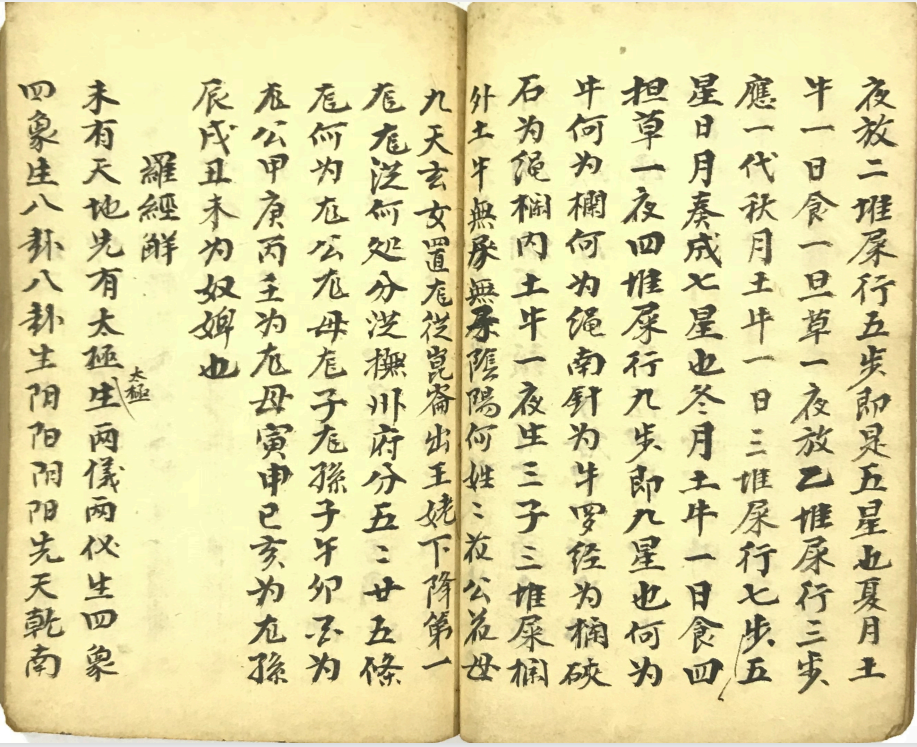 夜放二堆屎行五步即是五星也夏月土
牛一日食一旦草一夜放乙堆屎行三步
應一代秋月土牛一日三堆屎行七步五
星日月奏成七星也冬月土牛一日食四
担草一夜四堆屎行九步即九星也何为
牛何为欄何为绳南針为牛罗经为欄硤
石为绳欄内土牛一夜生三子三堆屎欄
外土牛無尿無屎陰陽何姓〻花公花母
九天玄女置龙從崑崙出王姥下降第一
龙龙从何処分從撫州府分五〻廿五條
龙何为龙公龙母龙子龙孫子午卯酉为
龙公甲庚丙壬为龙母寅申巳亥为龙孫
辰戌丑未为奴婢也
羅經解
未有天地先有太極太極生两儀两仪生四象
四象生八卦八卦生阴阳阴阳先天乾南